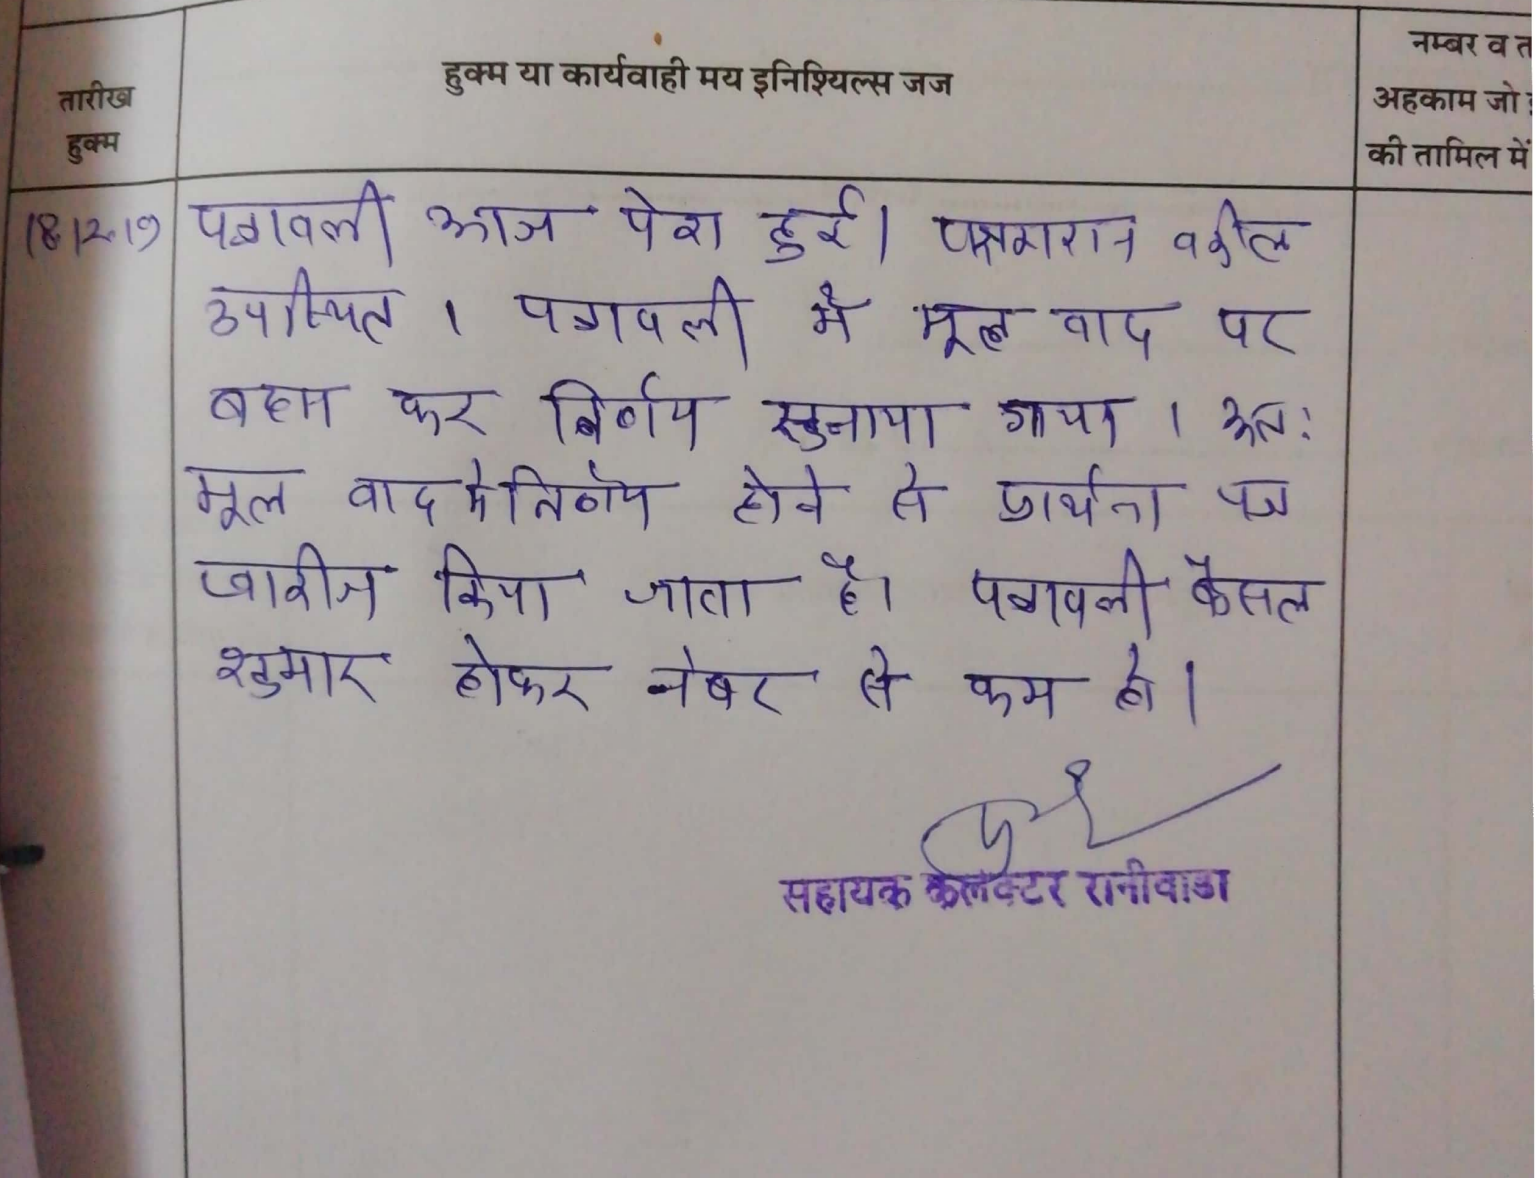 तारीख
हुक्म
हुक्म या कार्यवाही मय इनिश्यिल्स जज
नम्बर व त
अहकाम जो इ
की तामिल में
18/12/19 पत्रावली आज पेश हुई। पक्षगरान वकील
उपस्थित । पत्रावली में मूल वाद पर
बहस कर निर्णय सुनाया गया । अतः
मूल वाद मे निर्णय होने से प्रार्थना पत्र
खारीज किया जाता है। पत्रावली फैसल
शुमार होकर नंबर से कम हो।
सहायक कलक्टर रानीवाडा